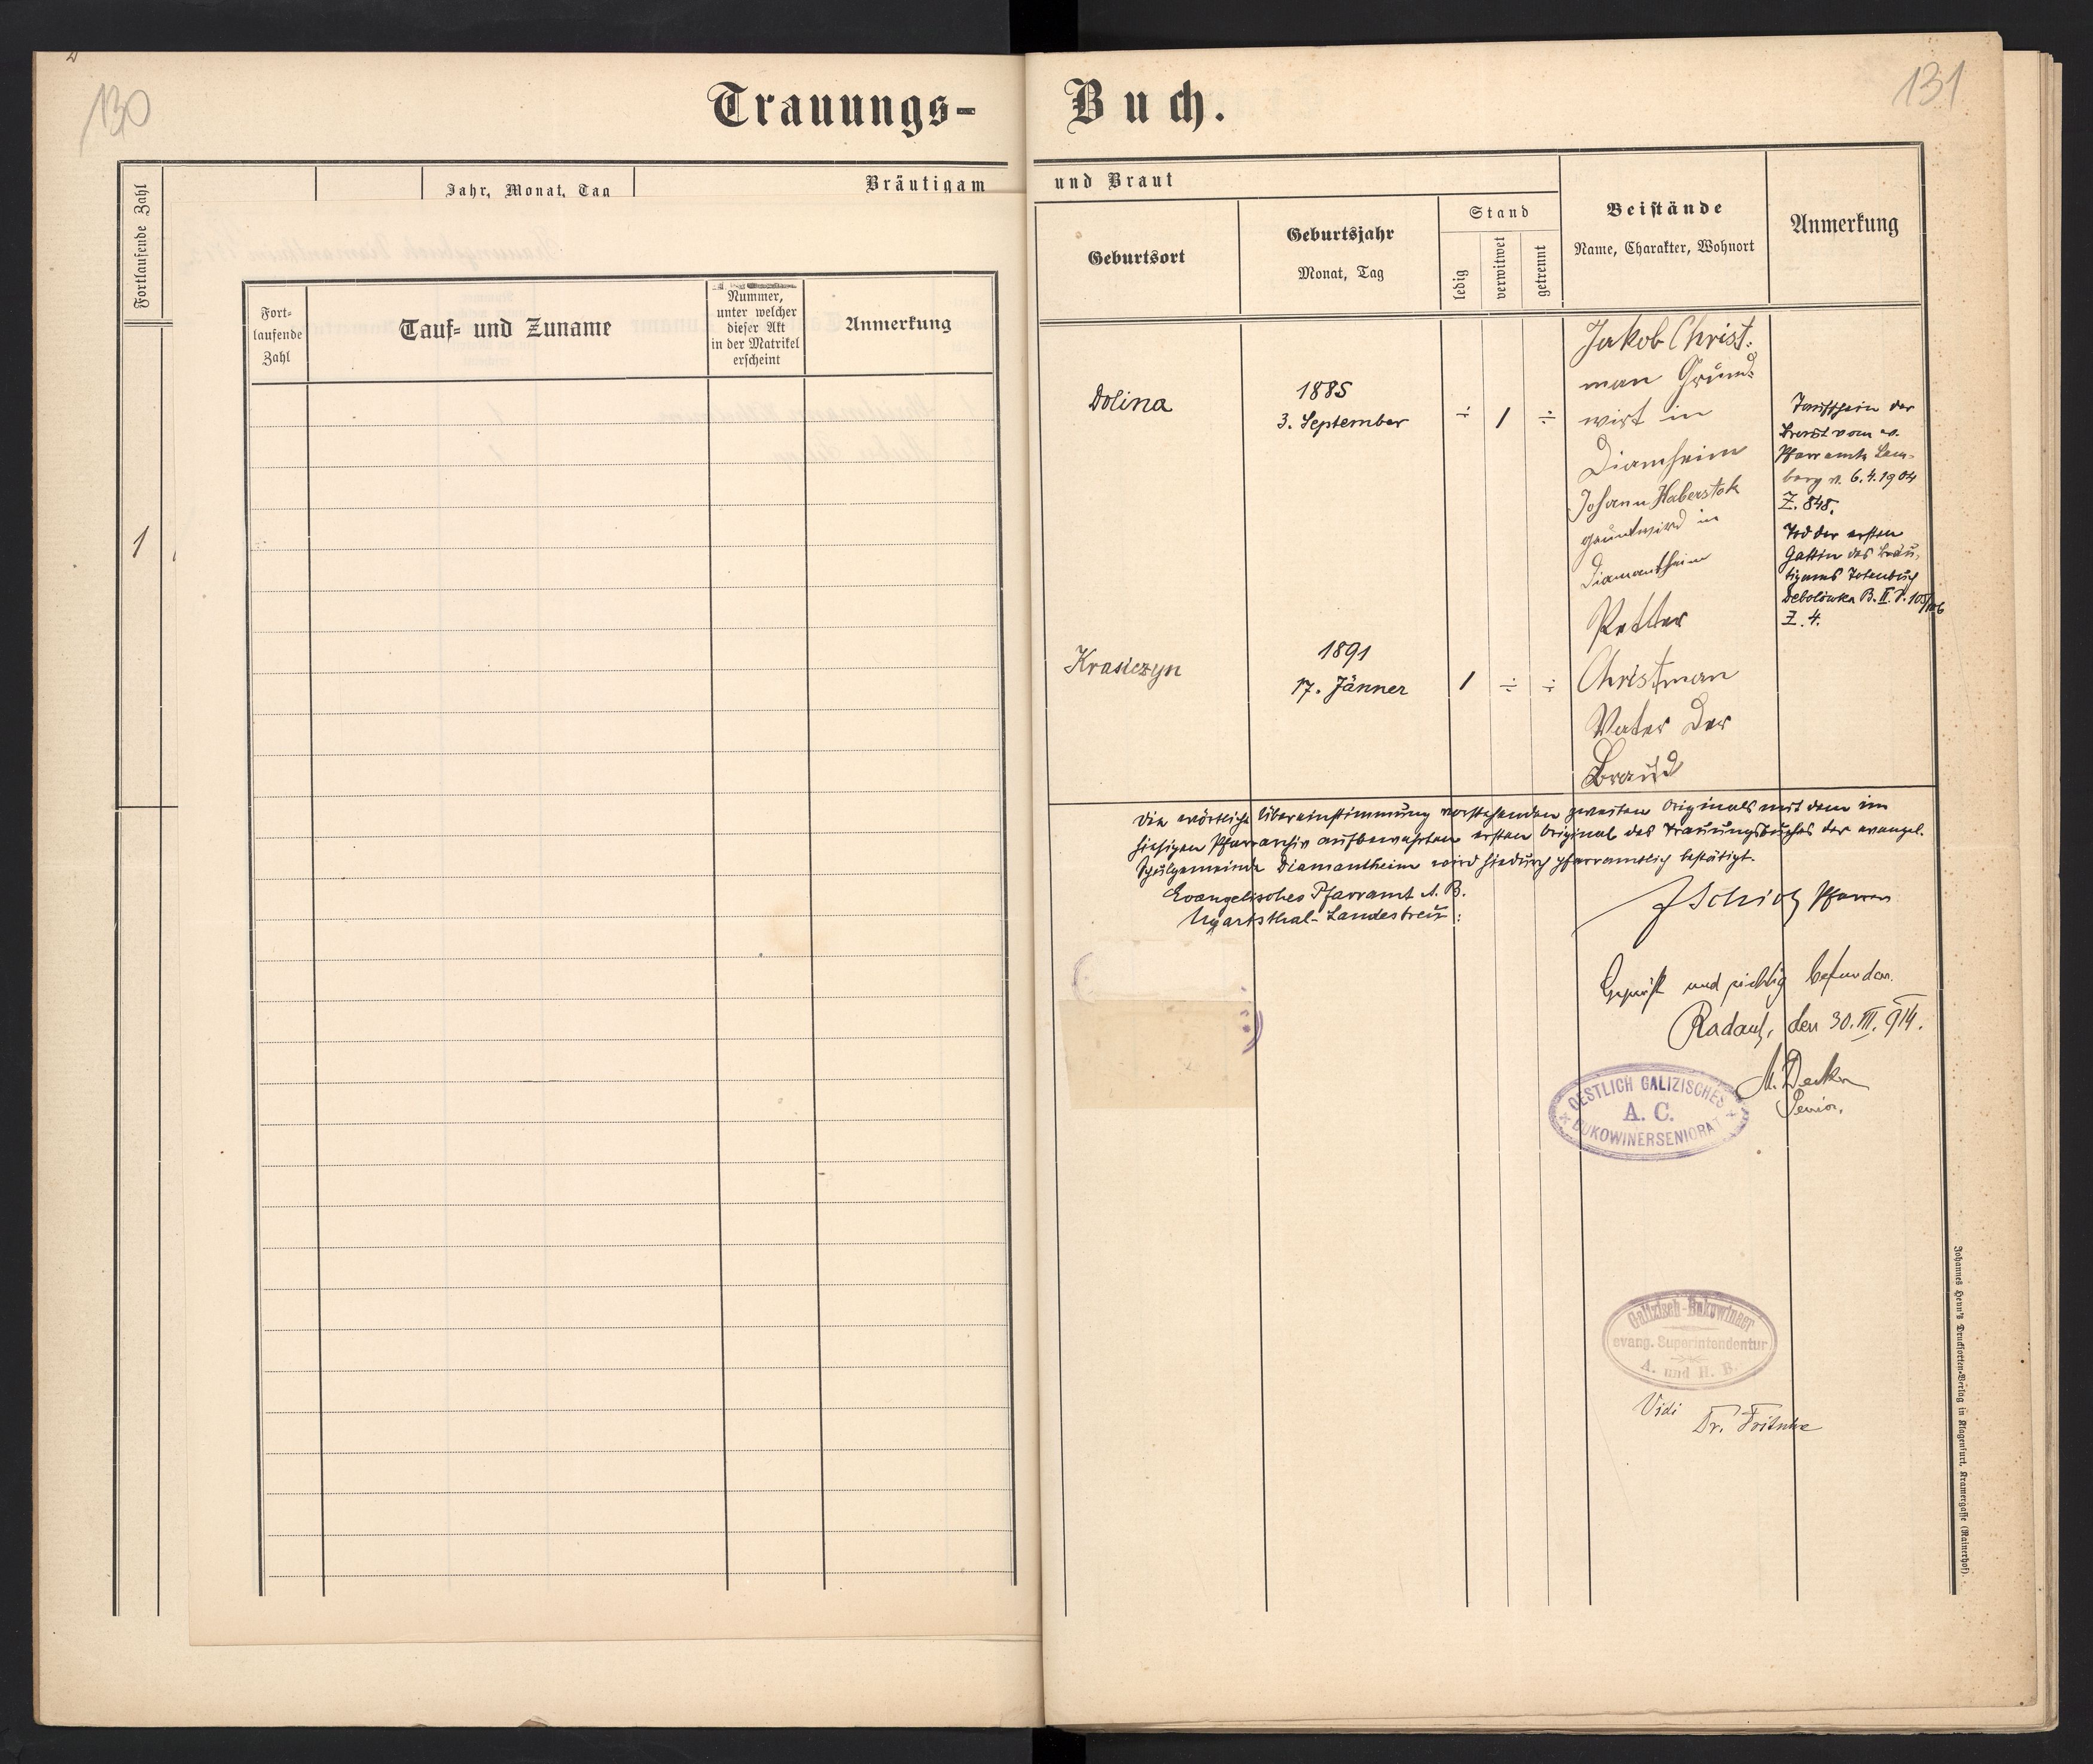 130
Trauungs-
Fortlaufende Zahl
Jahr, Monat, Tag
Bräutigam
1
Fort-
laufende
Zahl
Tauf- und Zuname
Nummer,
unter welcher
dieser Akt
in der Matrikel
erscheint
Anmerkung
131
Buch.
und Braut
Geburtsort
Geburtsjahr
Monat, Tag
Stand
ledig
verwitwet
getrennt
Beistände
Name, Charakter, Wohnort
Anmerkung
Dolina
1885
3. September
÷ 1 ÷
Jakob Christ-
man Grund-
wirt in
Diamheim
Johann Haberstok
grundwird in
Diamantheim
Petter
Christman
Vater der
Braud
Taufschein der
Braut vom ev.
Pfarramte Lem-
berg v. 6.4.1904
Z. 848.
Tod der ersten
Gattin des Bräu-
tigams Totenbuch
Debolówka B. II. S. 105/106
Z. 4.
Krasiczyn
1891
17. Jänner
1 ÷ ÷
Die wörtliche Übereinstimmung vorstehenden zweiten Originals mit dem im
hiesigen Pfarrarchiv aufbewahrten ersten Original des Trauungsbuches der evangel.
Schulgemeinde Diamantheim wird hiedurch pfarramtlich bestätigt.
Evangelisches Pfarramt A. B.
Ugartsthal-Landestreu:
Schick Pfarrer
Geprüft und richtig befunden.
Radautz, den 30. III. 914.
M. Decker
Senior.
OESTLICH GALIZISCHES
A. C.
BUKOWINERSENIORAT
Galizisch-Bukowiner
evang. Superintendentur
A. und H. B.
Vidi
Dr. Fritsche
Johannes Heyn's Drucksorten-Verlag in Klagenfurt, Kramergasse (Rainerhof).